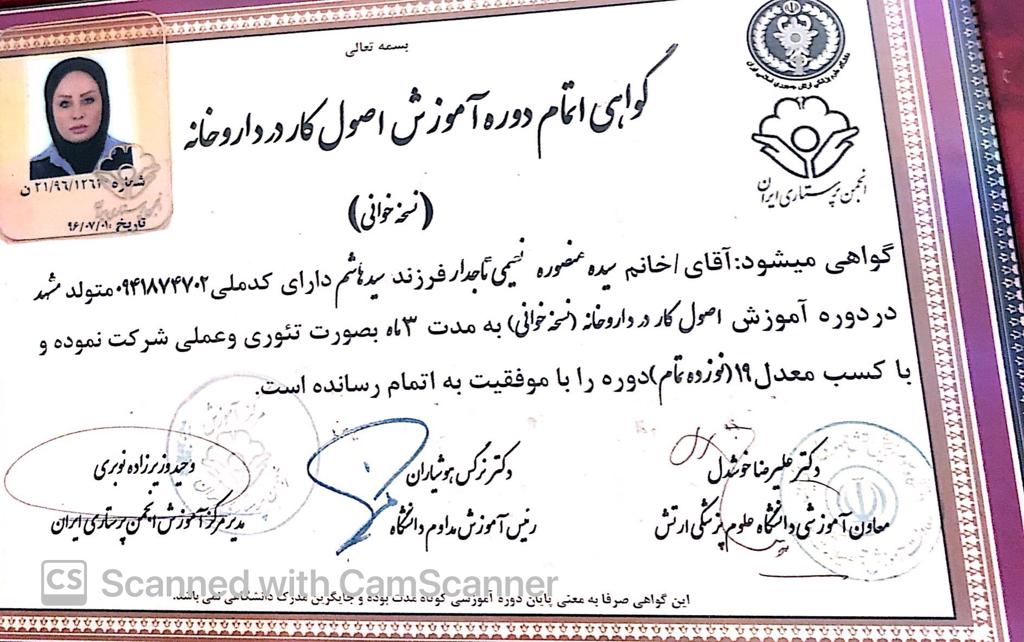 بسمه تعالی
گواهی اتمام دوره آموزش اصول کار در داروخانه
(نسخه خوانی)
شماره ۲۱/۹۶/۱۲۶۱ ن
تاریخ: ۹۶/۰۷/۰۱
انجمن پرستاری ایران
گواهی میشود: آقای/خانم سیده منصوره نسیمی تاجدار فرزند سید هاشم دارای کدملی ۰۹۴۱۸۷۴۷۰۲ متولد مشهد
در دوره آموزش اصول کار در داروخانه (نسخه خوانی) به مدت ۳ ماه بصورت تئوری وعملی شرکت نموده و
با کسب معدل ۱۹ (نوزده تمام) دوره را با موفقیت به اتمام رسانده است.
دکتر علیرضا خوشدل
معاون آموزشی دانشگاه علوم پزشکی ارتش
دکتر نرگس هوشیاران
رئیس آموزش مداوم دانشگاه
وحید وزیرزاده نوبری
مدیر مرکز آموزش انجمن پرستاری ایران
این گواهی صرفا به معنی پایان دوره آموزشی کوتاه مدت بوده و جایگزین مدرک دانشگاهی نمی باشد.
CS Scanned with CamScanner